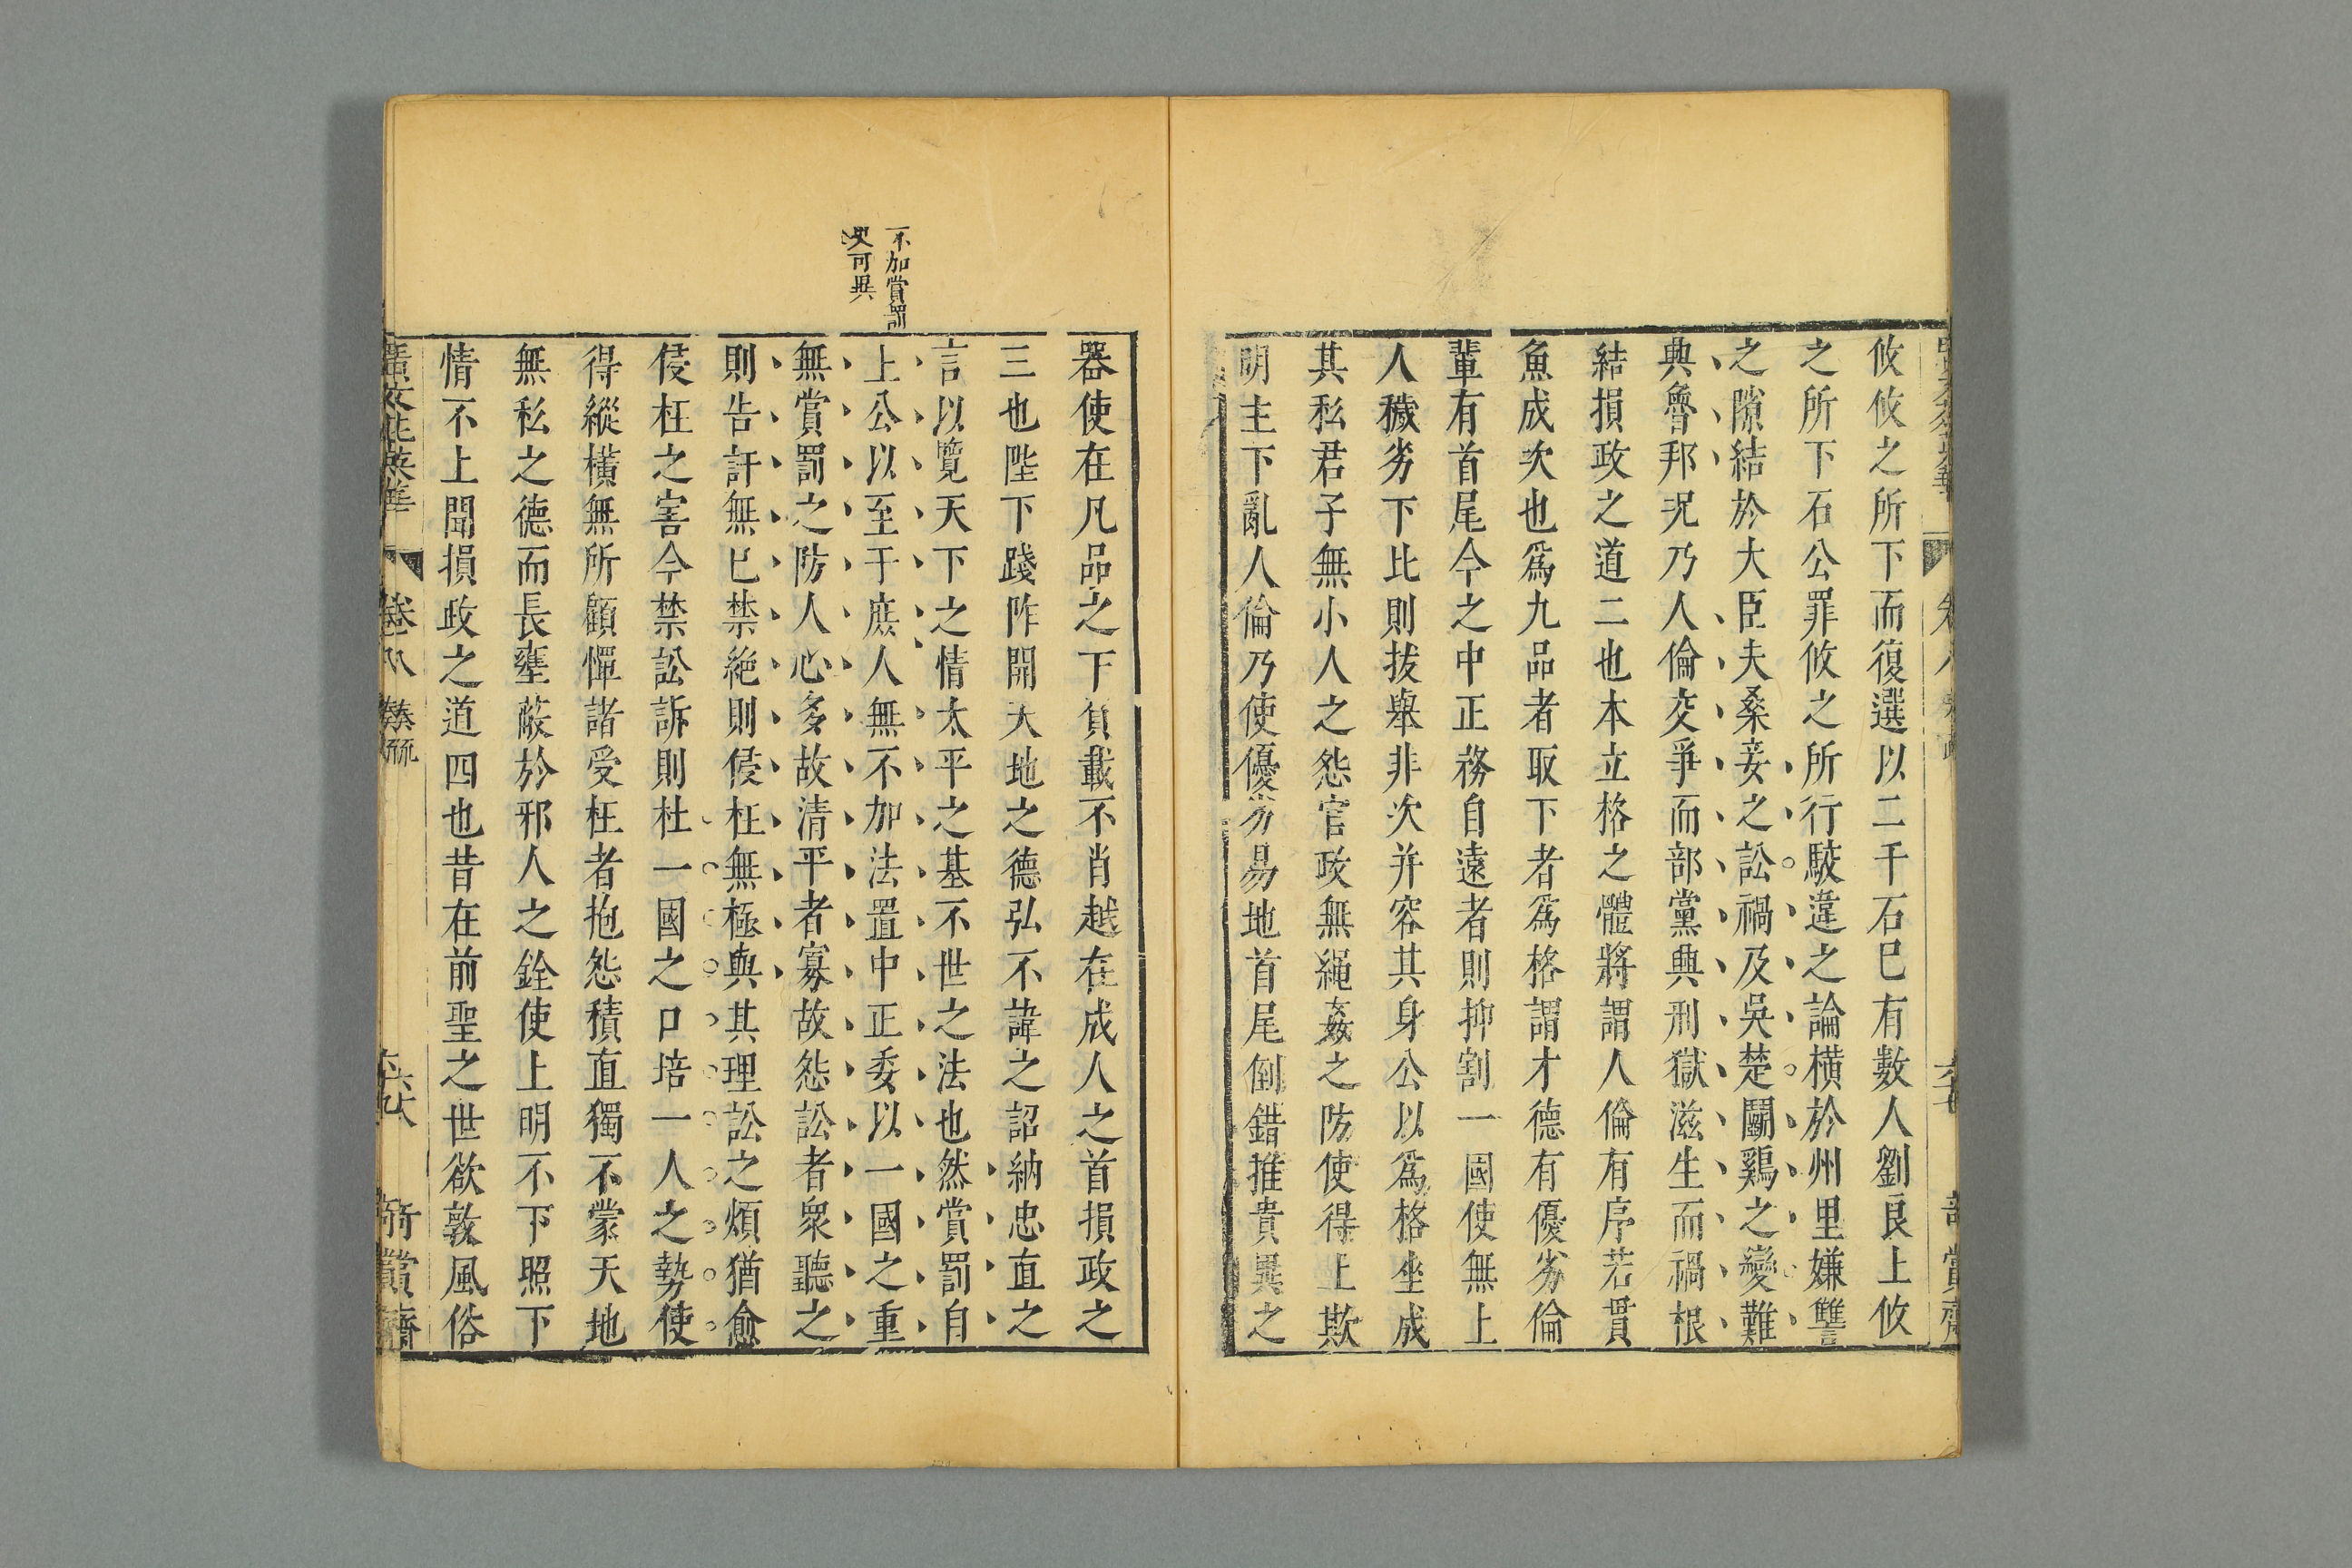 攸攸之所下而復選以二千石巳有數人劉良上攸
之所下石公罪攸之所行駁違之論橫於州里嫌讐
之隙結於大臣夫桑妾之訟禍及吳楚鬬鷄之變難
典魯邦況乃人倫交爭而部黨典刑獄滋生而禍根
結損政之道二也本立格之體將謂人倫有序若貫
魚成次也爲九品者取下者爲格謂才德有優劣倫
輩有首尾今之中正務自遠者則抑割一國使無上
人穢劣下比則拔舉非次并容其身公以爲格坐成
其私君子無小人之怨官政無繩姦之防使得上欺
明主下亂人倫乃使優劣易地首尾倒錯推貴異之
器使在凡品之下負載不肖越在成人之首損政之
三也陛下踐阼開天地之德弘不諱之詔納忠直之
言以覽天下之情太平之基不世之法也然賞罰自
上公以至于庶人無不加法置中正委以一國之重
無賞罰之防人心多故清平者寡故怨訟者衆聽之
則告訐無巳禁絶則侵枉無極與其理訟之煩猶愈
侵枉之害今禁訟訴則杜一國之口培一人之勢使
得縱橫無所顧憚諸受枉者抱怨積直獨不蒙天地
無私之德而長壅蔽於邪人之銓使上明不下照下
情不上聞損政之道四也昔在前聖之世欲敦風俗
不加賞罰
更可異
廣文苑英華 卷八 奏疏